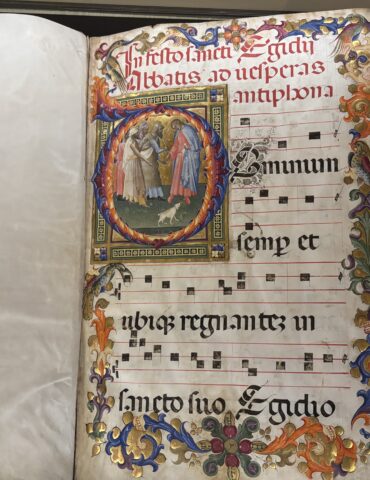 In festo sancti Egidij
Abbatis ad uesperas
antiphona
DOminum
semꝑ et
ubiqꝫ regnanteꝫ in
sancto suo Egidio